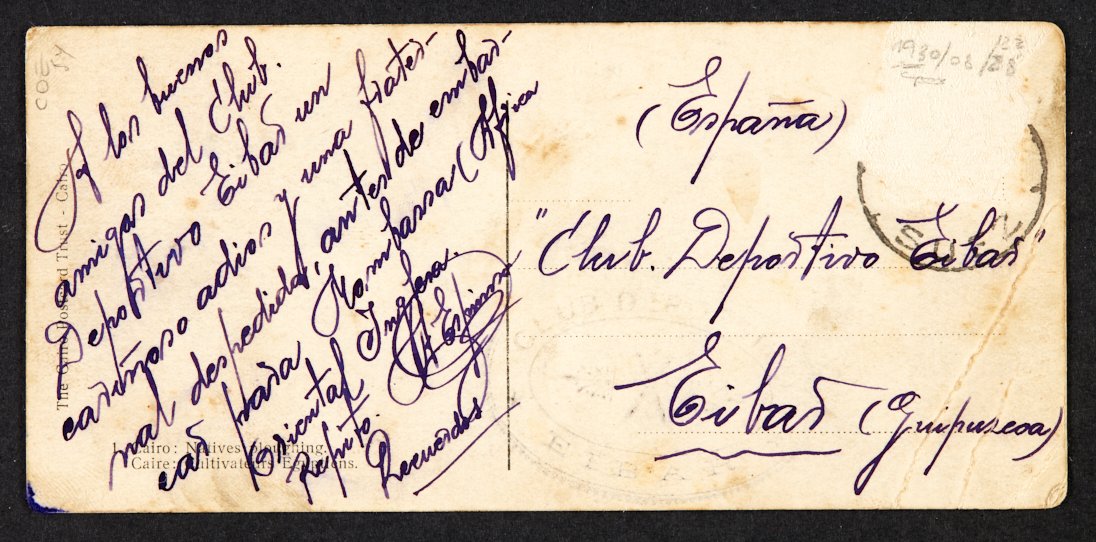 A los buenos
amigos del Club.
Deportivo Eibar un
cariñoso adios y una frater-
nal despedida, antes de embar-
car para Mombassa (Africa
Oriental Inglesa.
Recuerdos
(España)
"Club. Deportivo Eibar"
Eibar (Guipuzcoa)
1930/08/28
COE
The Cairo Postcard Trust - Cairo
Cairo: Natives ploughing.
Caire: Cultivateurs Egyptiens.
EIBAR